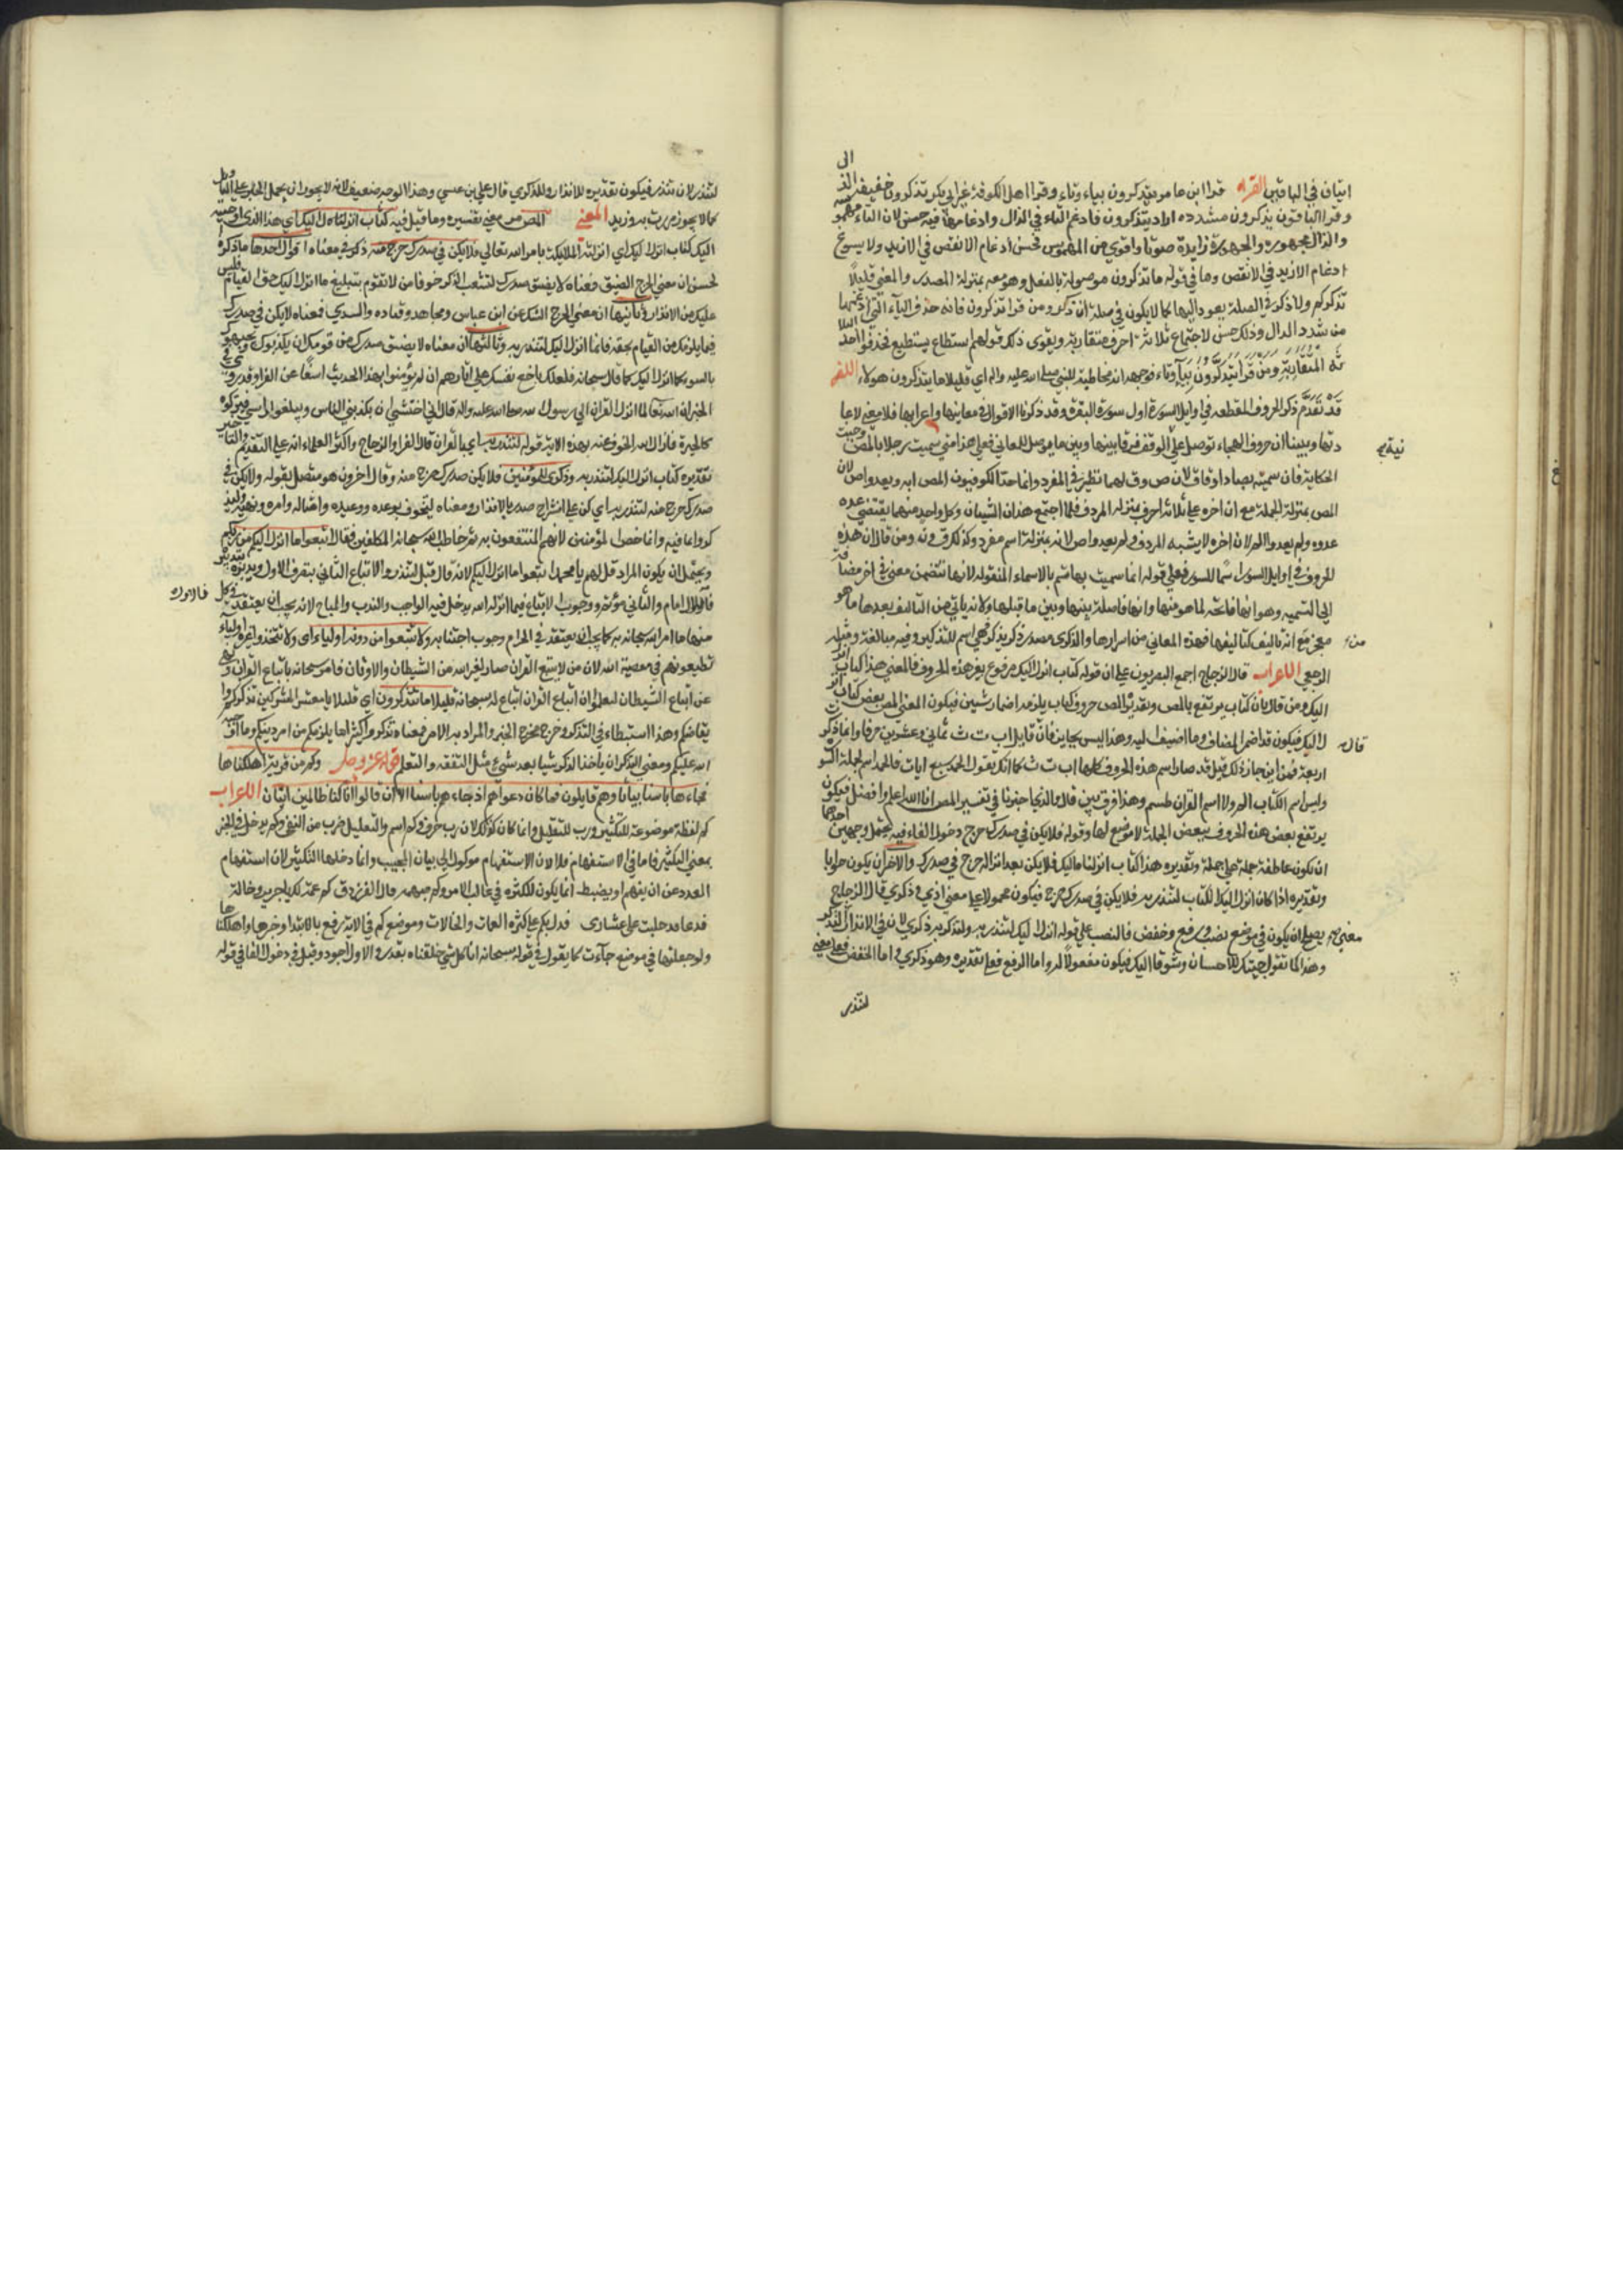 الى
ايتان في الباقين القراءة قرا ابن عامر يتذكرون بياء وتاء وقرا اهل الكوفة غير ابي بكر تذكرون خفيفة الذ
وقرا الباقون تذكرون مشددة اراد يتذكرون فادغم التاء في الذال وادغامها فيه حسن لان التاء مهمو
والذال مجهورة والمجهورة زايدة صوتا واقوى من المهموس فحسن ادغام الانقص في الازيد ولا يسوغ
ادغام الازيد في الانقص وما في قوله ما تذكرون موصولة بالفعل وهو معه بمنزلة المصدر والمعنى قليلاً
تذكركم ولا ذكر في الصلة يعود اليها كما لا يكون في صلة ان ذكر ومن قرا تذكرون فانه حذف التاء التي ادغمها
من شدد الذال وذلك حسن لاجتماع ثلاثة احرف متقاربة ويقوى ذلك قولهم اسطاع يسطيع فحذفوا احد الثلا
ثة المتقاربة ومن قرا يتذكرون بياء وتاء فوجهه انه مخاطبة للنبي صلى الله عليه واله اي قليلا ما يتذكرون هولاء اللغه
قد تقدم ذكر الحروف المقطعة في اوايل السورة اول سورة البقرة وقد ذكرنا الاقوال في معانيها واعرابها فلا معنى لاعا
دتها وبينا ان حروف الهجاء توصل على الوقف فرقا بينها وبين ما يوصل للمعاني فعلى هذا متى سميت رجلا بالمص وجبت
الحكاية فان سميته بصاد او قاف لان ص وق لهما نظير في المفرد وانما عد الكوفيون المص اية ولم يعدوا ص لان
المص بمنزلة الجملة مع ان اخره على ثلاثة احرف بمنزلة المردف فلما اجتمع هذان الشيئان وكل واحد منهما يقتضي عده
عدوه ولم يعدوا المر لان اخره لا يشبه المردف ولم يعدوا ص لانه بمنزلة اسم مفرد وكذلك ق ون ومن قال ان هذه
الحروف في اوايل السور اسما للسور فعلى قوله انما سميت بها
الى التسمية وهو انها فاتحة لما هو منها وانها فاصلة بينها وبين ما قبلها ولانه ياتي من التاليف بعدها ما هو
معجز مع انه تاليف كتاليفها فهذه المعاني من اسرارها والذكرى مصدر ذكر يذكر فهي اسم للتذكير وفيه مبالغة ومثله
الرجعى الاعراب قال الزجاج اجمع البصريون على ان قوله كتاب انزل اليك مرفوع بغير هذه الحروف فالمعنى هذا كتاب انز
اليك ومن قال بان كتاب يرتفع بالمص وتقديره المص حروف كتاب يلزمه اضمار شيئين فيكون المعنى المص بعض كتاب انز
ل اليك فيكون قد اضمر المضاف وما اضيف اليه وهذا ليس بجايز فان قال قايل ا ب ت ث ثماني وعشرين حرفا وانما ذكر
اربعة فمن اين جاز ذلك قيل قد صار اسم هذه الحروف كلها ا ب ت ث كما انك تقول الحمد سبع ايات فالحمد اسم لجملة السو
وليس اسم الكتاب المر ولا اسم القران طسم وهذا فرق بين قال مالذي اجتونا في تفسير المص انا الله اعلم وافضل فيكون
يرتفع بعض هذه الحروف ببعض الجملة لا موضع لها وقوله فلا يكن في صدرك حرج دخول الفاء فيه يحتمل وجهين احدهما
ان يكون عاطفة جملة على جملة وتقديره هذا كتاب انزلناه اليك فلا يكن بعد انزاله حرج في صدرك والاخر ان يكون جوابا
وتقديره اذا كان انزل اليك الكتاب لتنذر به فلا يكن في صدرك حرج فيكون محمولا على معنى اذ وذكرى قال الزجاج
يصلح ان يكون في موضع نصب ورفع وخفض فالنصب على قوله انزل اليك لتنذر به ولتذكر به ذكرى لان في الانذار التذكر
وهذا كما تقول جيتك للاحسان وشوقا اليك فيكون مفعولا له واما الرفع فعلى تقديره وهو ذكرى واما الخفض فعلى معنى
لتنذر
قال
معنى
لتنذر لان تنذر فيكون تقديره للانذار وللذكرى قال علي بن عيسى وهذا الوجه ضعيف لانه لا يجوز ان يحمل الجر على التاويل
كما لا يجوز مررت به وزيد المعنى المص مر معنى تفسيره وما قيل فيه كتاب انزلناه اليك اي هذا الذي اوحيته
اليك كتاب انزل اليك اي انزلته الملايكة بامر الله تعالى فلا يكن في صدرك حرج منه ذكر في معناه اقوال احدها ما ذكره
الحسن ان معنى الحرج الضيق فمعناه لا يضيق صدرك لتشعب الفكر خوفا من لا تقوم بتبليغ ما انزل اليك حق القيام فليس
عليك من الانذار ثانيها ان معنى الحرج الشك عن ابن عباس ومجاهد وقتاده والسدي فمعناه لا يكن في صدرك شك
فيما يلزمك من القيام بحقه فانما انزل اليك لتنذر به وثالثها ان معناه لا يضيق صدرك من قومك ان يكذبوك ويجبهوك
بالسوء بما انزل اليك كما قال سبحانه فلعلك باخع نفسك على اثارهم ان لم يؤمنوا بهذا الحديث اسفا عن الفرا وقد روي في
الخبر ان الله تعالى لما انزل القران الى رسول الله صلى الله عليه واله قال اني اخشى ان يكذبني الناس ويبلغوا راسي فيتركوه
كالخبزة فازال الله الخوف عنه بهذه الاية قوله لتنذر به اي بالقران قال الفرا والزجاج واكثر العلماء انه على التقديم والتاخير
تقديره كتاب انزل اليك لتنذر به وذكرى للمؤمنين فلا يكن صدرك حرج منه وقال اخرون هو متصل بقوله ولا يكن في
صدرك حرج منه لتنذر به اي كن على انشراح صدر بالانذار ومعناه لتخوف بوعده ووعيده وامثاله وامره ونهيه وليذ
كروا ما فيه وانما خص المؤمنين لانهم المنتفعون به ثم خاطب الله سبحانه المكلفين فقال اتبعوا ما انزل اليكم من ربكم
ويحتمل ان يكون المراد قل لهم يا محمد اتبعوا ما انزل اليكم لانه قال قبل لتنذر والاتباع الثاني بتصرف الاول وتدبره بتدبيره
فالاول امام والثاني مؤتم ووجوب الاتباع فيما انزله الله يدخل فيه الواجب والندب والمباح لانه يجب ان يعتقد في كل
منها ما امر الله سبحانه به كما يجب ان يعتقد في الحرام وجوب اجتنابه ولا تتبعوا من دونه اولياء اي ولا تتخذوا غيره اولياء
تطيعونهم في معصية الله لان من لا يتبع القران صار لغير الله من الشيطان والاوثان فامر سبحانه باتباع القران ونهى
عن اتباع الشيطان ليعلم ان اتباع القران اتباع له سبحانه قليلا ما تذكرون اي قليلا يا معشر المشركين تذكركم وا
يقاظكم وهذا استبطاء في التذكر وخرج مخرج الخبر والمراد به الامر فمعناه تذكروا كثيرا ما يلزمكم من امر دينكم وما اوجبه
الله عليكم ومعنى التذكر ان ياخذ الذكر شيا بعد شيء مثل التفقه والتعلم قوله عز وجل وكم من قرية اهلكناها
فجاءها باسنا بياتا وهم قايلون فما كان دعواهم اذ جاءهم باسنا الا ان قالوا انا كنا ظالمين ايتان الاعراب
كم لفظة موضوعة للتكثير ورب للتقليل وانما كان كذلك لان رب حرف وكم اسم والتعليل ضرب من النفي وكم يدخل في الخبر
بمعنى التكثير فاما في الاستفهام فلا لان الاستفهام موكول الى بيان المجيب وانما دخلها التكثير لان استفهام
العدد عن ان يفهم او يضبط انما يكون للكثرة في غالب الامر وكم مبهمه قال الفرزدق كم عمة لك يا جرير وخالة
فدعا قد حلبت علي عشاري فدل بكم على كثرة العمات والخالات وموضع كم في الاية رفع بالابتدا وخبرها اهلكناها
ولو جعلتها في موضع جازت كما يقول في قوله سبحانه انا كل شي خلقناه بقدر والاول اجود وقيل في دخول الفا في قوله
فالاول